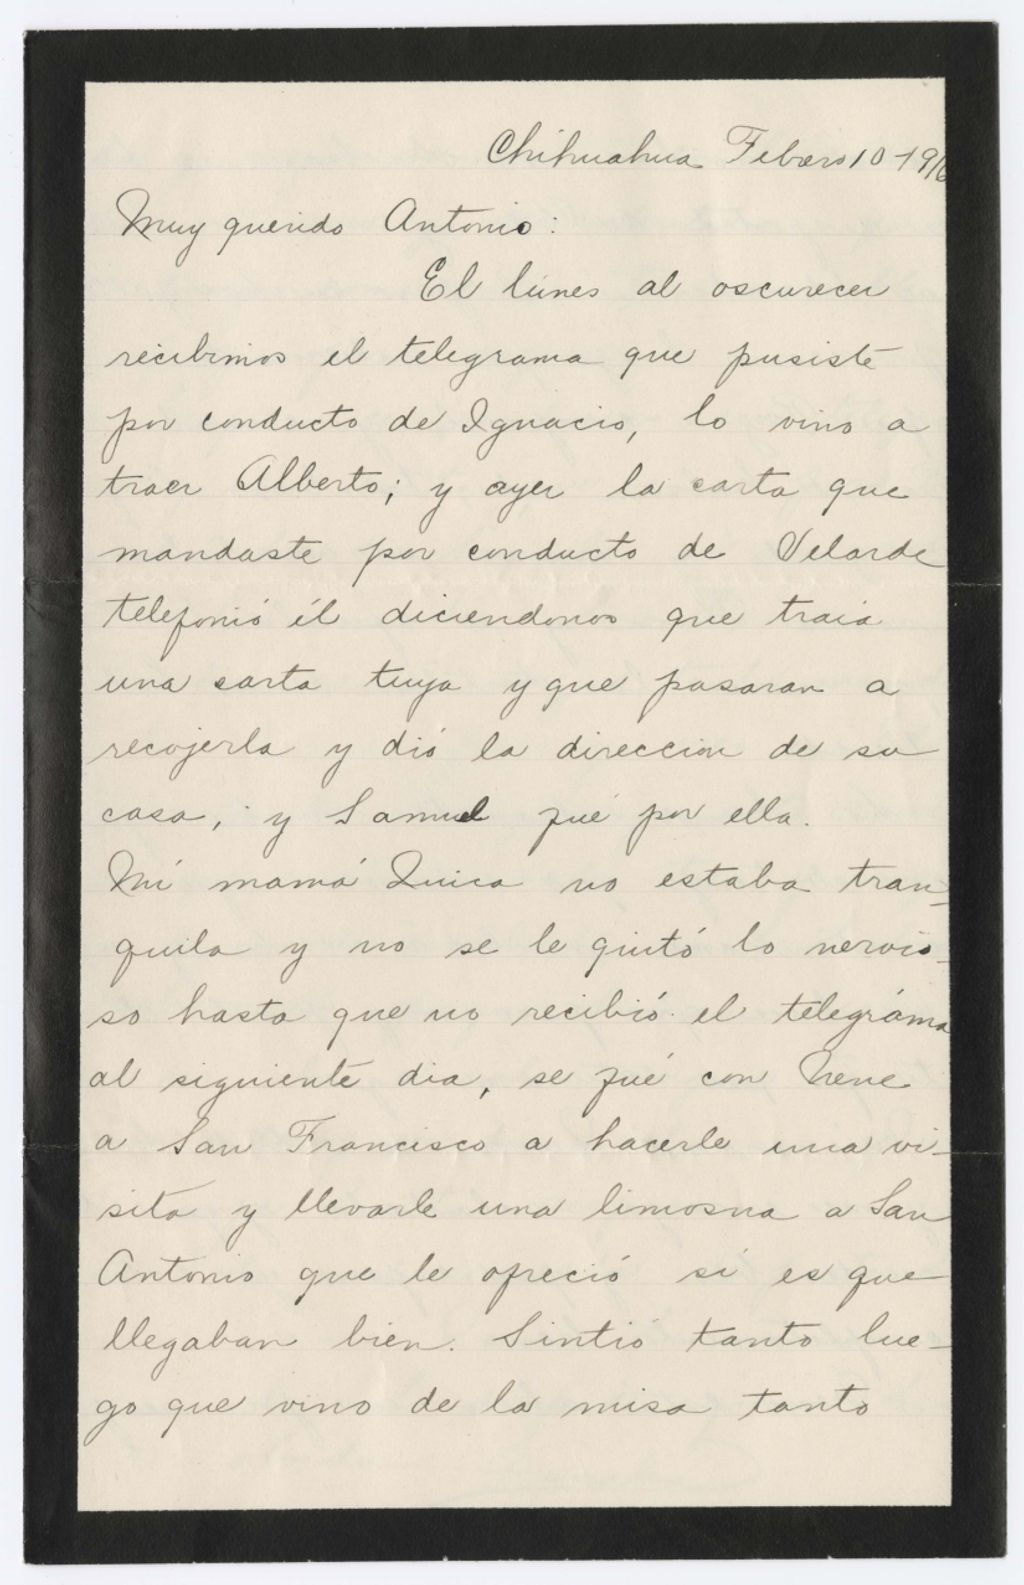 Chihuahua Febrero 10-1916
Muy querido Antonio:
El lúnes al oscurecer
recibimos el telegrama que pusiste
por conducto de Ignacio, lo vino a
traer Alberto; y ayer la carta que
mandaste por conducto de Velarde
telefonió él diciendonos que traia
una carta tuya y que pasaran a
recojerla y dió la direccion de su
casa, y Samuel fué por ella.
Mi mamá Quica no estaba tran-
quila y no se le quitó lo nervio-
so hasta que no recibió el telegráma
al siguiente dia, se fué con Nene
a San Francisco a hacerle una vi-
sita y llevarle una limosna a San
Antonio que le ofreció si es que
llegaban bien. Sintió tanto lue-
go que vino de la misa tanto